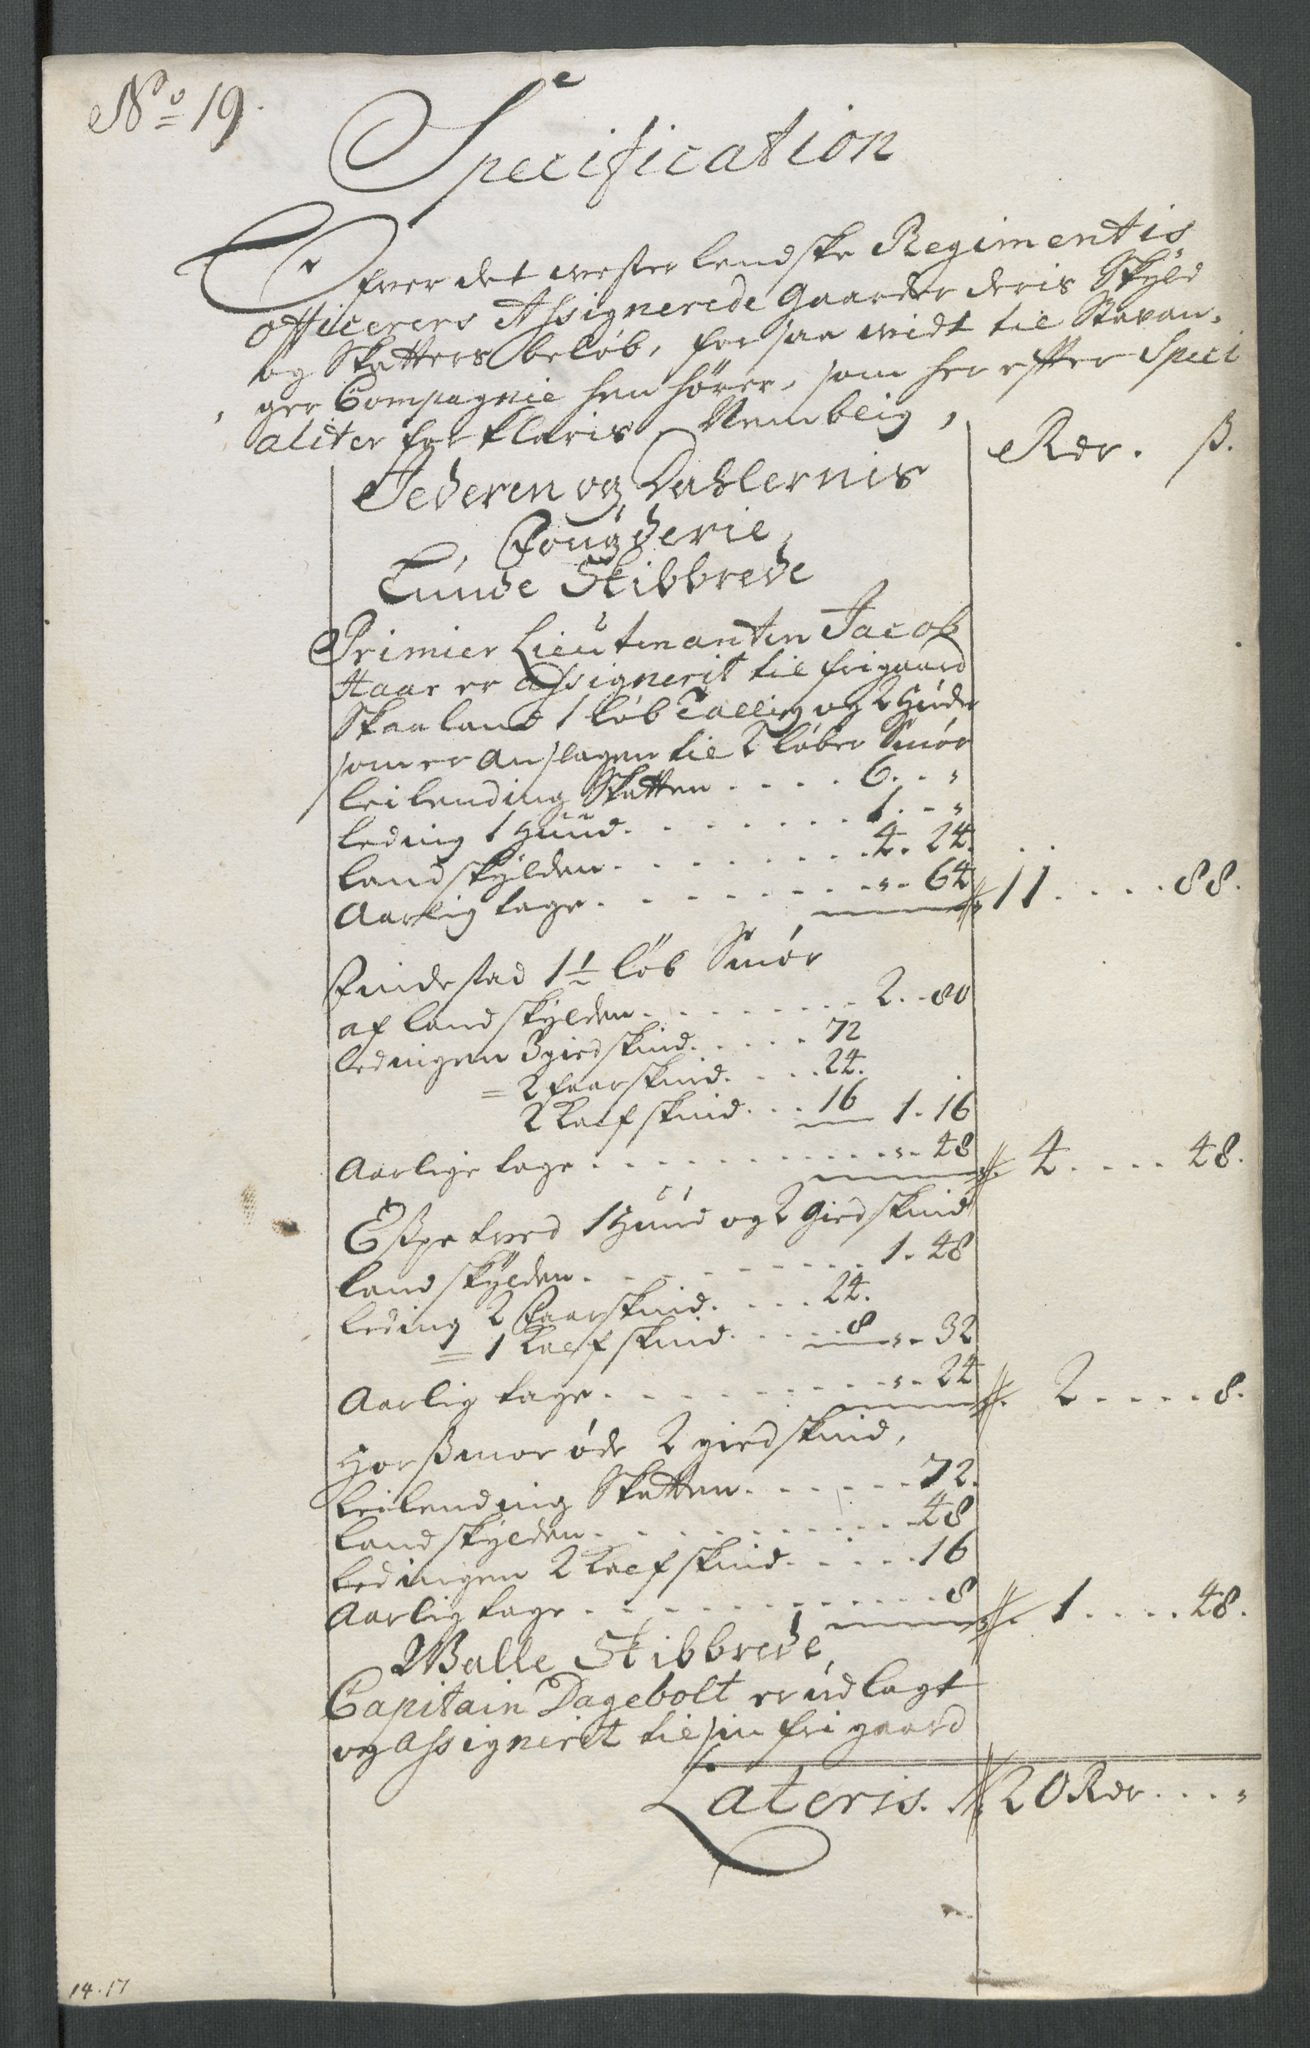 No 19.
Specification
Ofver det vester lendske Regimentis
officerers Assignerede gaarder deris Skyld
og Skatters beløb, for saa vidt til Stavan,
ger Compagnie hen hører, som her effter Speci
aliter forklaris, Nemblig,
Rdr. ß.
Jederen og Dahlernis
Fougderie,
Lunde Skibbrede
Primier Lieutenanten Jacob
Haar er assignerit til frigaard
Skaaland 1 løb Tallig og 2 Huder
som er anslagen til 2 løber Smør
leilending Skatten . . . . 6. - "
leding 1 Huud. . . . . . . 1. - "
landskylden. . . . . . . . 4. 24. . .
Aarlig tage. . . . . . . " - 64 11. . . . 88.
Findestad 1½ løb Smør
af landskylden. . . . . . . 2. - 80
ledingen 3 giedskind. . . . . 72
= 2 faarskind. . . . 24.
2 Kalfskind. . . 16 1. 16
Aarlige tage . . . . . . . . " - 48 4. . . . 48.
Espetved 1 Huud og 2 giedskind
landskylden. . . . . . . . 1. 48
leding 2 Faarskind. . . . 24.
= 1 Kalfskind. . . . . 8 " - 32
Aarlig tage. . . . . . . . " - 24 2. . . . . 8.
Horßmor øde 2 giedskind,
leilending Skatten. . . . . . 72.
landskylden. . . . . . . . 48
ledingen 2 Kalfskind. . . . . 16
Aarlig tage. . . . . . . . . 8 1. . . . 48.
Walle Skibbrede
Capitain Dagebolt er udlagt
og assignerit til sin frigaard
Lateris. 20 Rdr. . . . "
14.17